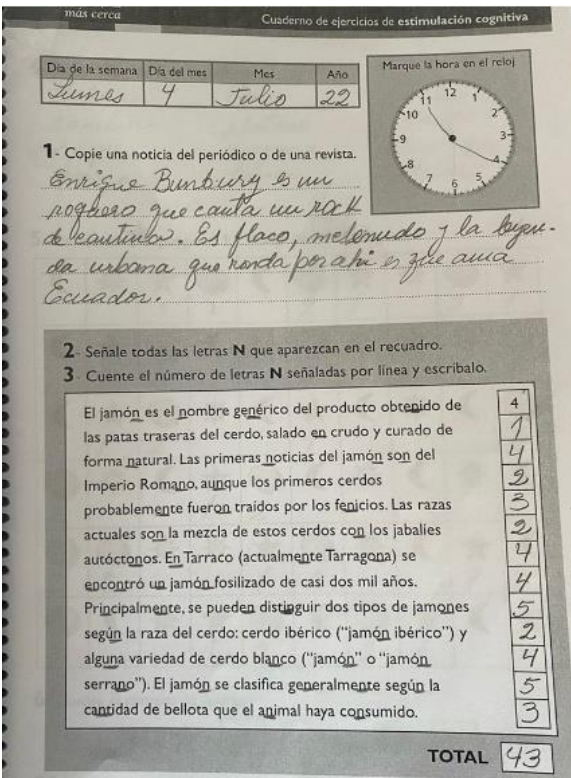 más cerca
Cuaderno de ejercicios de estimulación cognitiva
Día de la semana Día del mes Mes Año
Lunes 4 Julio 22
Marque la hora en el reloj
12
11 1
10 2
9 3
8 4
7 5
6
1- Copie una noticia del periódico o de una revista.
Enrique Bunbury es un
roquero que canta un rock
de cantina. Es flaco, melenudo y la leyen-
da urbana que ronda por ahí es que ama
Ecuador.
2- Señale todas las letras N que aparezcan en el recuadro.
3- Cuente el número de letras N señaladas por línea y escríbalo.
El jamón es el nombre genérico del producto obtenido de 4
las patas traseras del cerdo, salado en crudo y curado de 1
forma natural. Las primeras noticias del jamón son del 4
Imperio Romano, aunque los primeros cerdos 2
probablemente fueron traídos por los fenicios. Las razas 3
actuales son la mezcla de estos cerdos con los jabalíes 2
autóctonos. En Tarraco (actualmente Tarragona) se 4
encontró un jamón fosilizado de casi dos mil años. 4
Principalmente, se pueden distinguir dos tipos de jamones 5
según la raza del cerdo: cerdo ibérico ("jamón ibérico") y 2
alguna variedad de cerdo blanco ("jamón" o "jamón 4
serrano"). El jamón se clasifica generalmente según la 5
cantidad de bellota que el animal haya consumido. 3
TOTAL 43